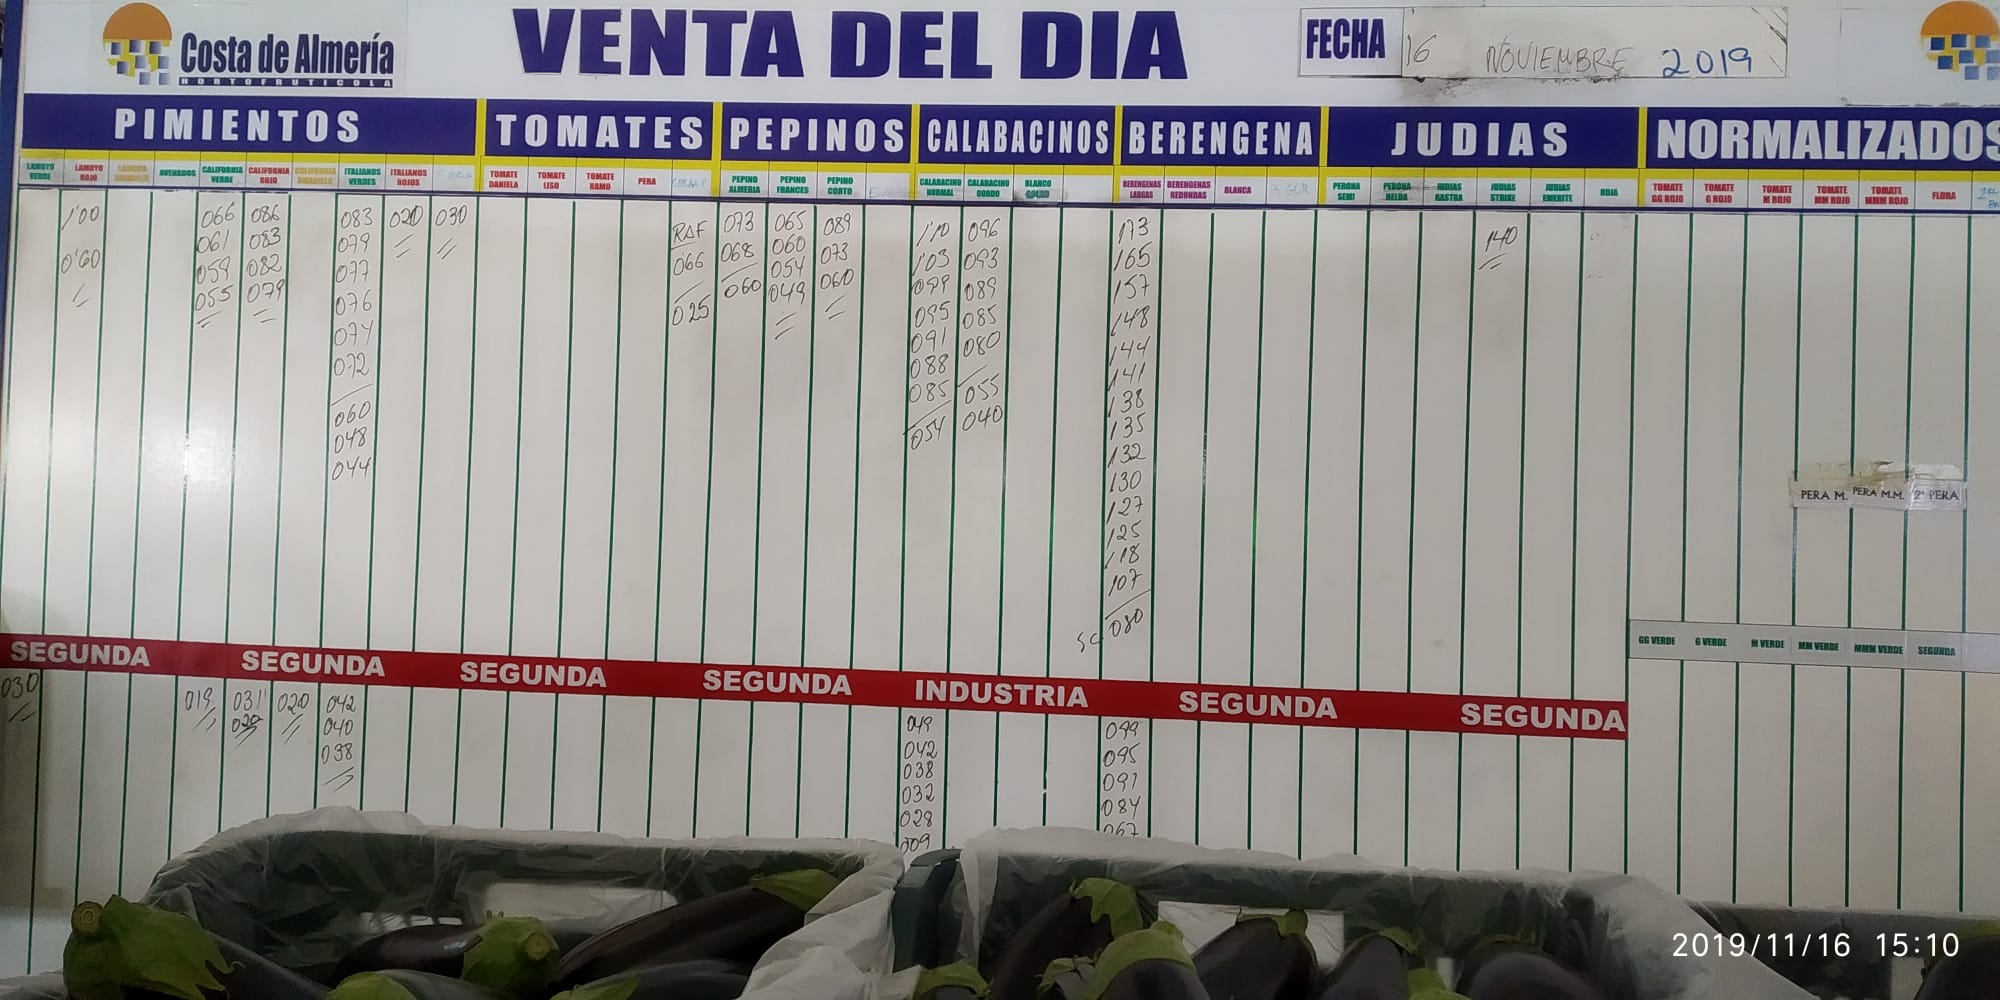 Costa de Almería
HORTOFRUTICOLA
VENTA DEL DIA
FECHA 16 NOVIEMBRE 2019
PIMIENTOS TOMATES PEPINOS CALABACINOS BERENGENA JUDIAS NORMALIZADOS
LAMUYO VERDE
LAMUYO ROJO
LAMUYO AMARILLO
AVENADOS
CALIFORNIA VERDE
CALIFORNIA ROJO
CALIFORNIA AMARILLO
ITALIANOS VERDES
ITALIANOS ROJOS
TOMATE DANIELA
TOMATE LISO
TOMATE RAMO
PERA
PEPINO ALMERIA
PEPINO FRANCES
PEPINO CORTO
CALABACINO NORMAL
CALABACINO GORDO
BLANCO GORDO
BERENGENAS LARGAS
BERENGENAS REDONDAS
BLANCA
PERONA SEMI
PERONA HELDA
JUDIAS RASTRA
JUDIAS STRIKE
JUDIAS EMERITE
ROJA
TOMATE GG ROJO
TOMATE G ROJO
TOMATE M ROJO
TOMATE MM ROJO
TOMATE MMM ROJO
FLORA
1'00
0'60
066
061
059
055
086
083
082
079
083
079
077
076
074
072
060
048
044
020
030
RAF
066
025
073
068
060
065
060
054
049
089
073
060
1'10
1'03
099
095
091
088
085
054
096
093
089
085
080
055
040
173
165
157
148
144
141
138
135
132
130
127
125
118
107
SC 080
140
PERA M. PERA M.M. 2ª PERA
GG VERDE G VERDE M VERDE MM VERDE MMM VERDE SEGUNDA
SEGUNDA SEGUNDA SEGUNDA SEGUNDA INDUSTRIA SEGUNDA SEGUNDA
030
019
031
020
020
042
040
038
049
042
038
032
028
009
099
095
091
084
067
2019/11/16 15:10